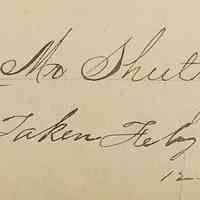 Mr Sheet
Taken Feby
12